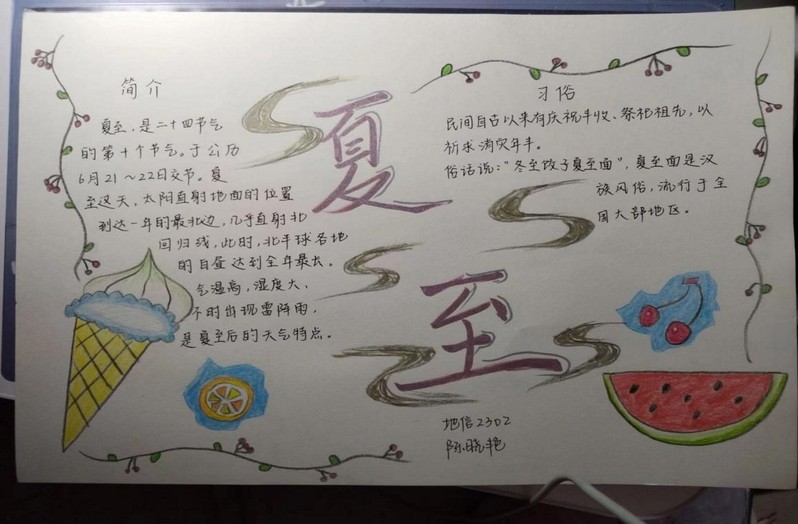 简介
夏至，是二十四节气
的第十个节气。于公历
6月21～22日交节。夏
至这天，太阳直射地面的位置
到达一年的最北边，几乎直射北
回归线，此时，北半球各地
的白昼达到全年最长。
气温高，湿度大，
不时出现雷阵雨，
是夏至后的天气特点。
夏
至
习俗
民间自古以来有庆祝丰收、祭祀祖先，以
祈求消灾年丰。
俗话说："冬至饺子夏至面"，夏至面是汉
族风俗，流行于全
国大部地区。
地信2302
陈晓艳